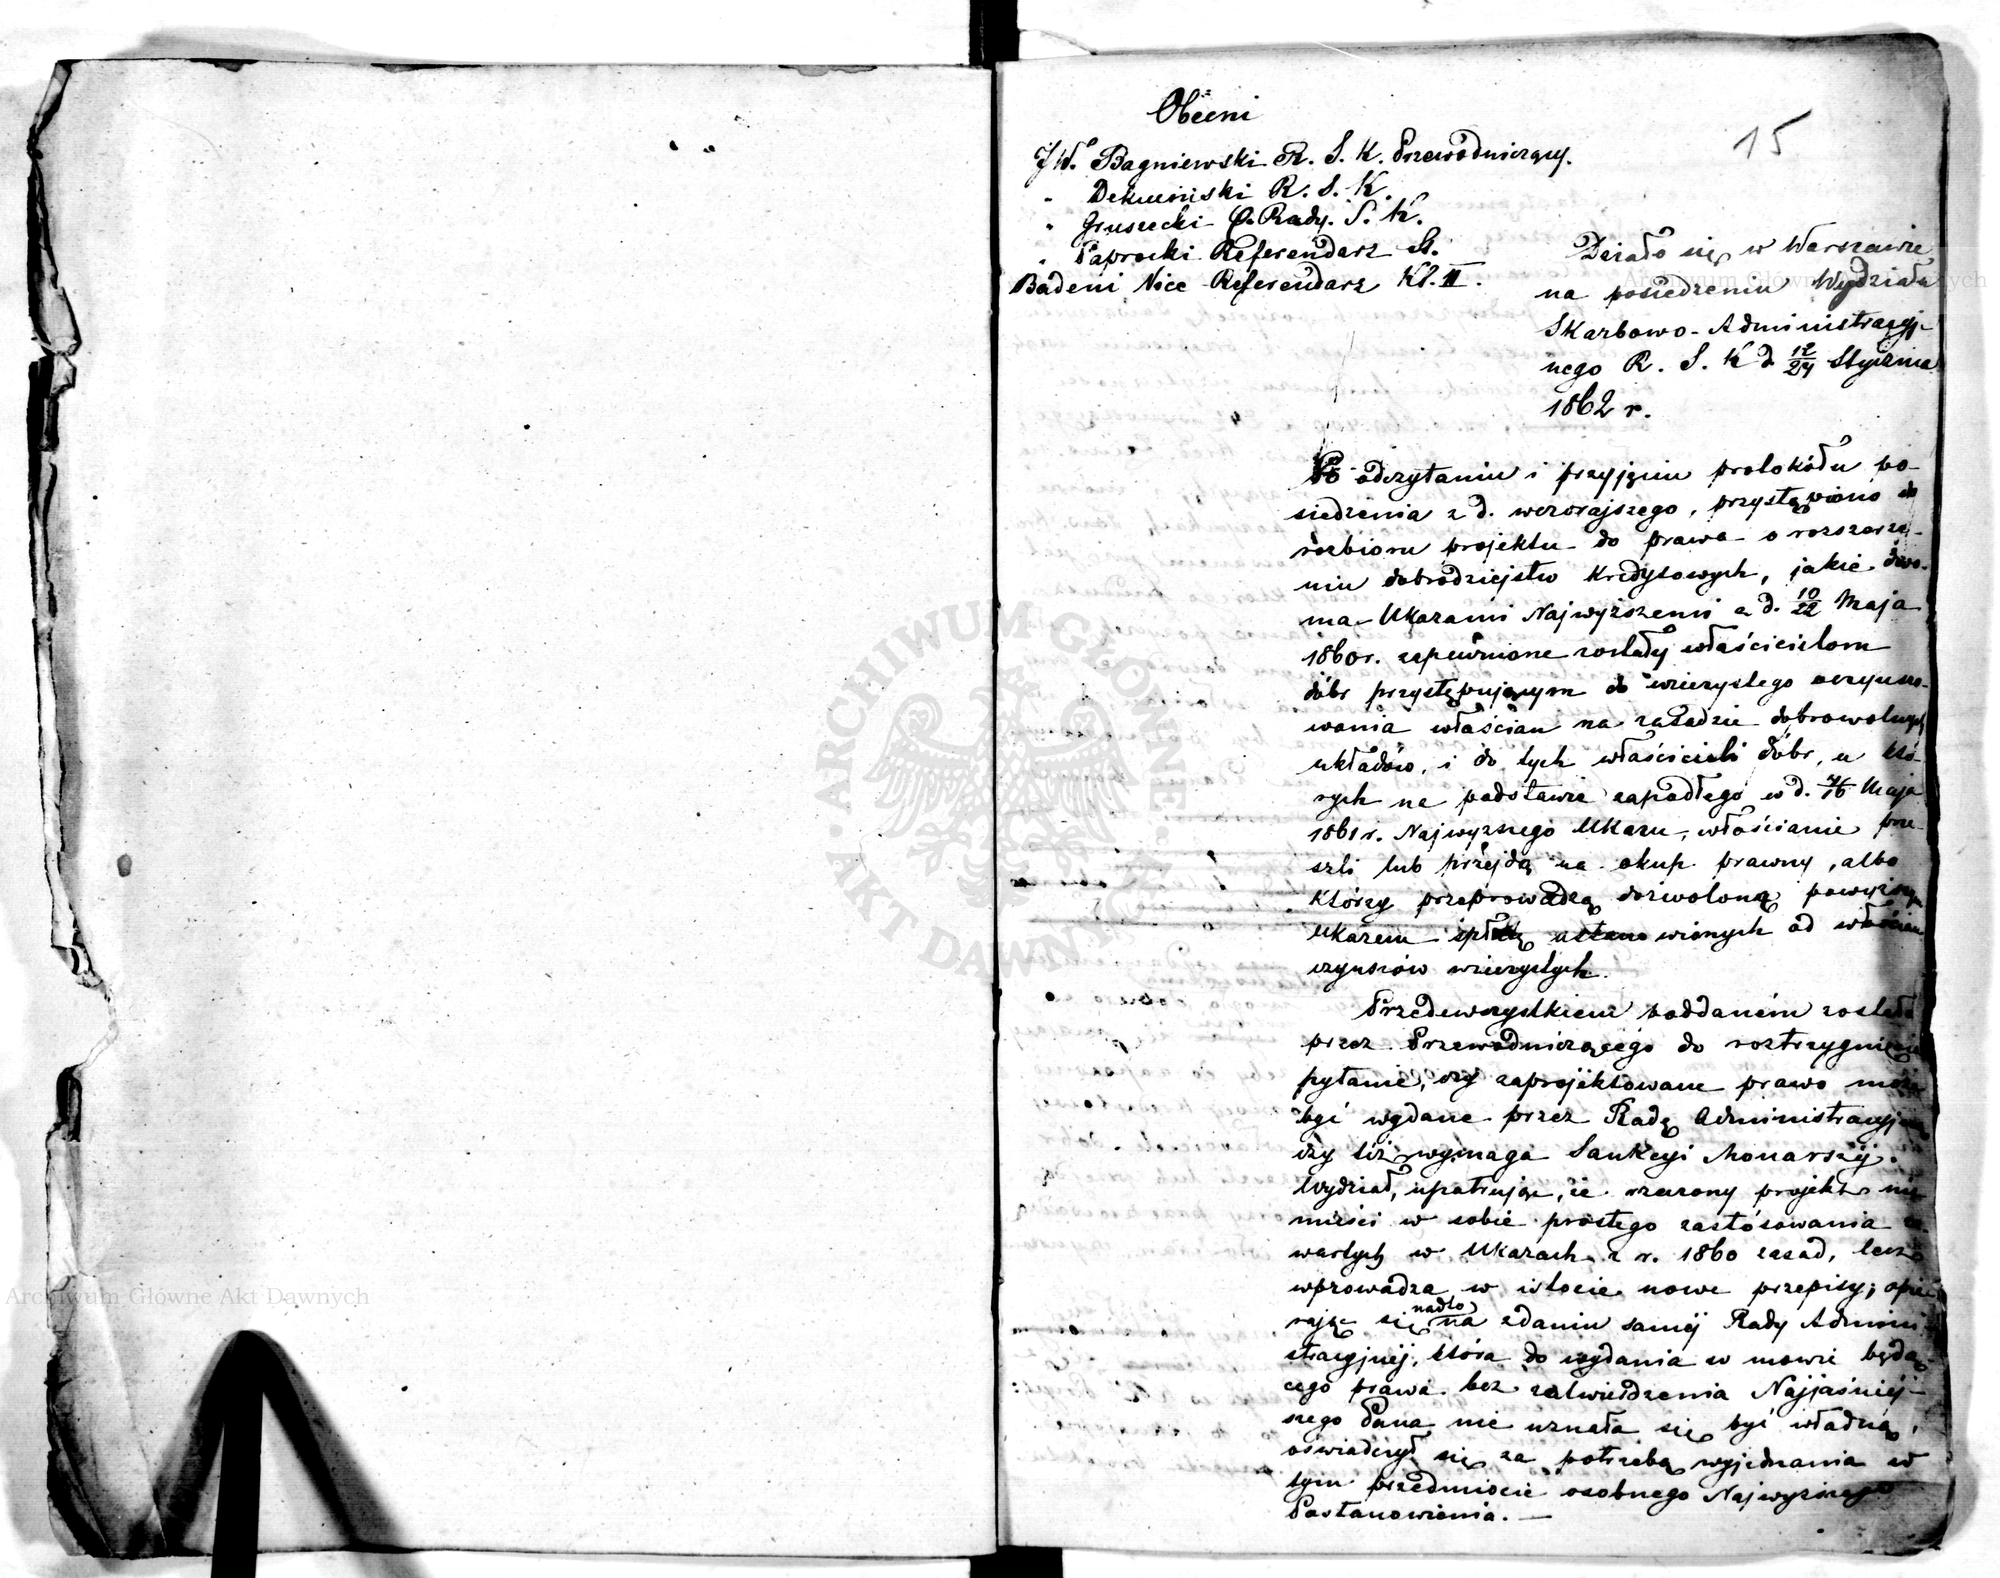 15
Obecni
JW. Bagniewski R. S. K. Przewodniczący.
" R. S. K.
" Gruszecki C. Rady. S. K.
" Paprocki Referendarz St.
Badeni Vice-Referendarz Kl. II.
Działo się w Warszawie
na posiedzeniu Wydziału
Skarbowo-Administracyj-
nego R. S. K. d. 12/24 Stycznia
1862 r.
Po odczytaniu i przyjęciu protokółu po-
siedzenia z d. wczorajszego, przystąpiono do
rozbioru projektu do prawa o rozszerze-
niu dobrodziejstw kredytowych, jakie dwo-
ma Ukazami Najwyższemi z d. 10/22 Maja
1860 r. zapewnione zostały właścicielom
dóbr przystępującym do wieczystego oczynszo-
wania włościan na zasadzie dobrowolnych
układów, i do tych właścicieli dóbr, u któ-
rych na podstawie zapadłego w d. 4/16 Maja
1861 r. Najwyższego Ukazu, włościanie prze-
szli lub przejdą na okup prawny, albo
którzy przeprowadzą dozwoloną powyższym
Ukazem spłatę ustanowionych od włościan
czynszów wieczystych.
Przedewszystkiem poddaném zostało
przez Przewodniczącego do roztrzygnięcia
pytanie, czy zaprojektowane prawo może
być wydane przez Radę Administracyjną
czy też wymaga Sankcyi Monarszéj.
Wydział, upatrując, że rzeczony projekt nie
mieści w sobie prostego zastósowania za-
wartych w Ukazach z r. 1860 zasad, lecz
wprowadza w istocie nowe przepisy; opie-
rając się nadto na zdaniu saméj Rady Admini-
stracyjnéj, która do wydania w mowie będą-
cego prawa bez zatwierdzenia Najjaśniéj-
szego Pana nie uznała się być władną,
oświadczył się za potrzebą wyjednania w
tym przedmiocie osobnego Najwyższego
Postanowienia. —
Archiwum Główne Akt Dawnych
Archiwum Główne Akt Dawnych
ARCHIWUM GŁÓWNE AKT DAWNYCH